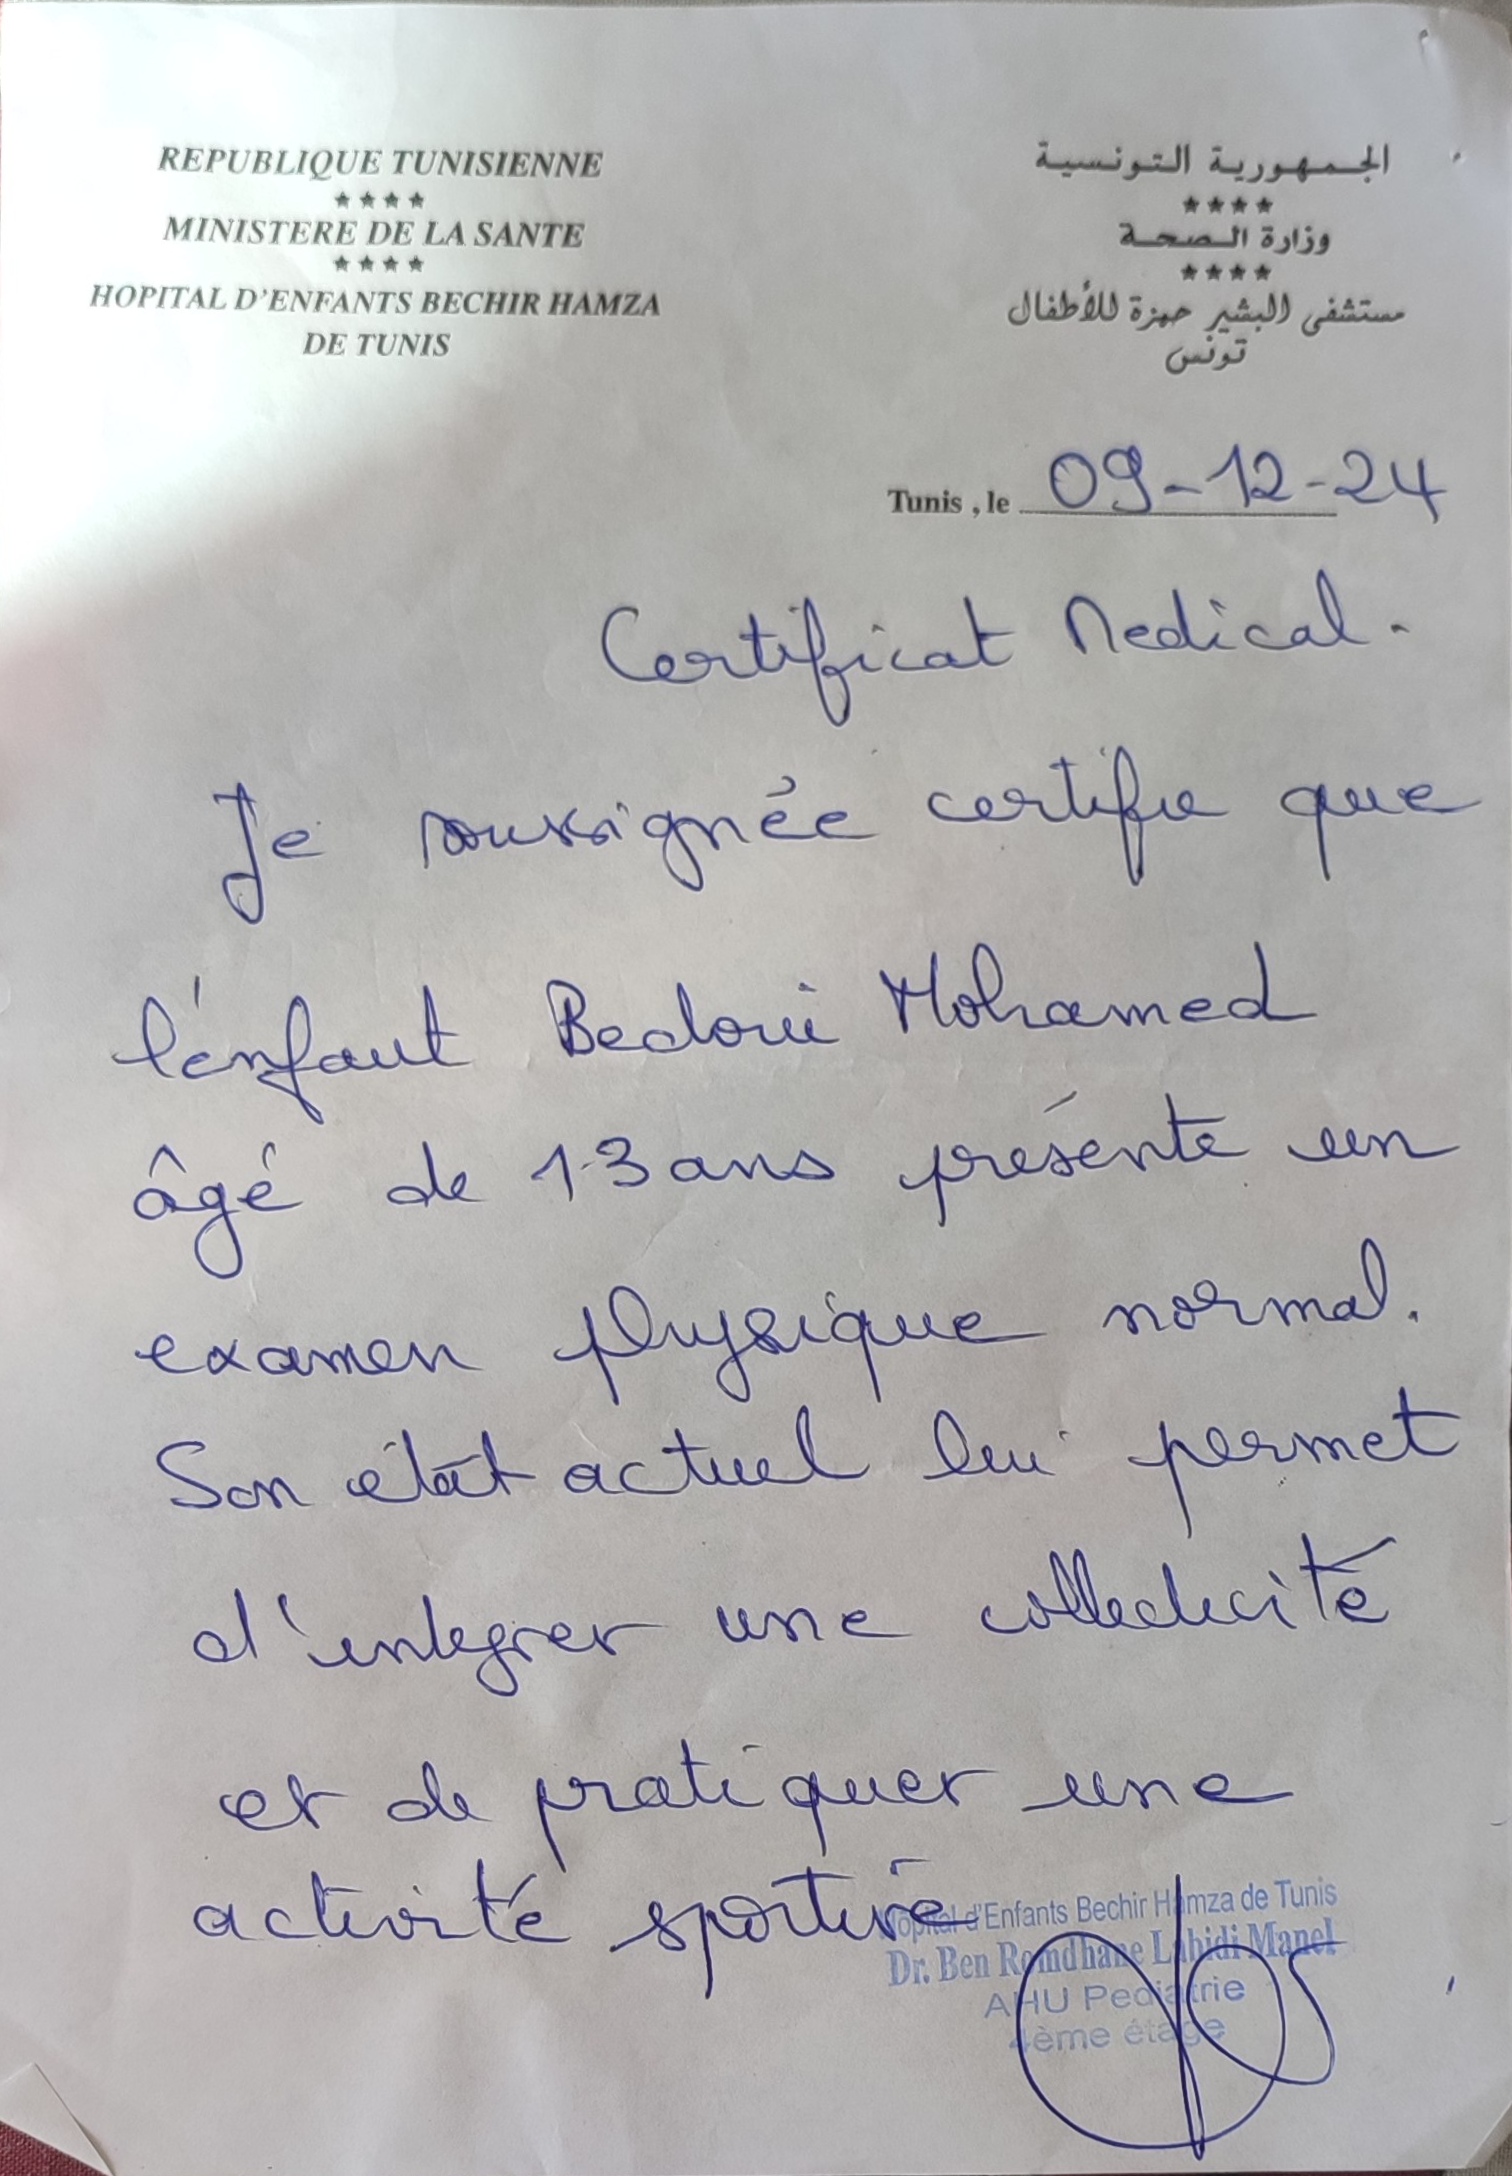 REPUBLIQUE TUNISIENNE
★★★★
MINISTERE DE LA SANTE
★★★★
HOPITAL D'ENFANTS BECHIR HAMZA
DE TUNIS
الجمهورية التونسية
★★★★
وزارة الصحة
★★★★
مستشفى البشير حمزة للأطفال
تونس
Tunis , le 09-12-24
Certificat Medical.
Je soussignée certifie que
l'enfant Bedoui Mohamed
âgé de 13 ans présente un
examen physique normal.
Son état actuel lui permet
d'integrer une collectivité
et de pratiquer une
activité sportive
Hopital d'Enfants Bechir Hamza de Tunis
Dr. Ben Romdhane Labidi Manel
AHU Pediatrie
4ème étage